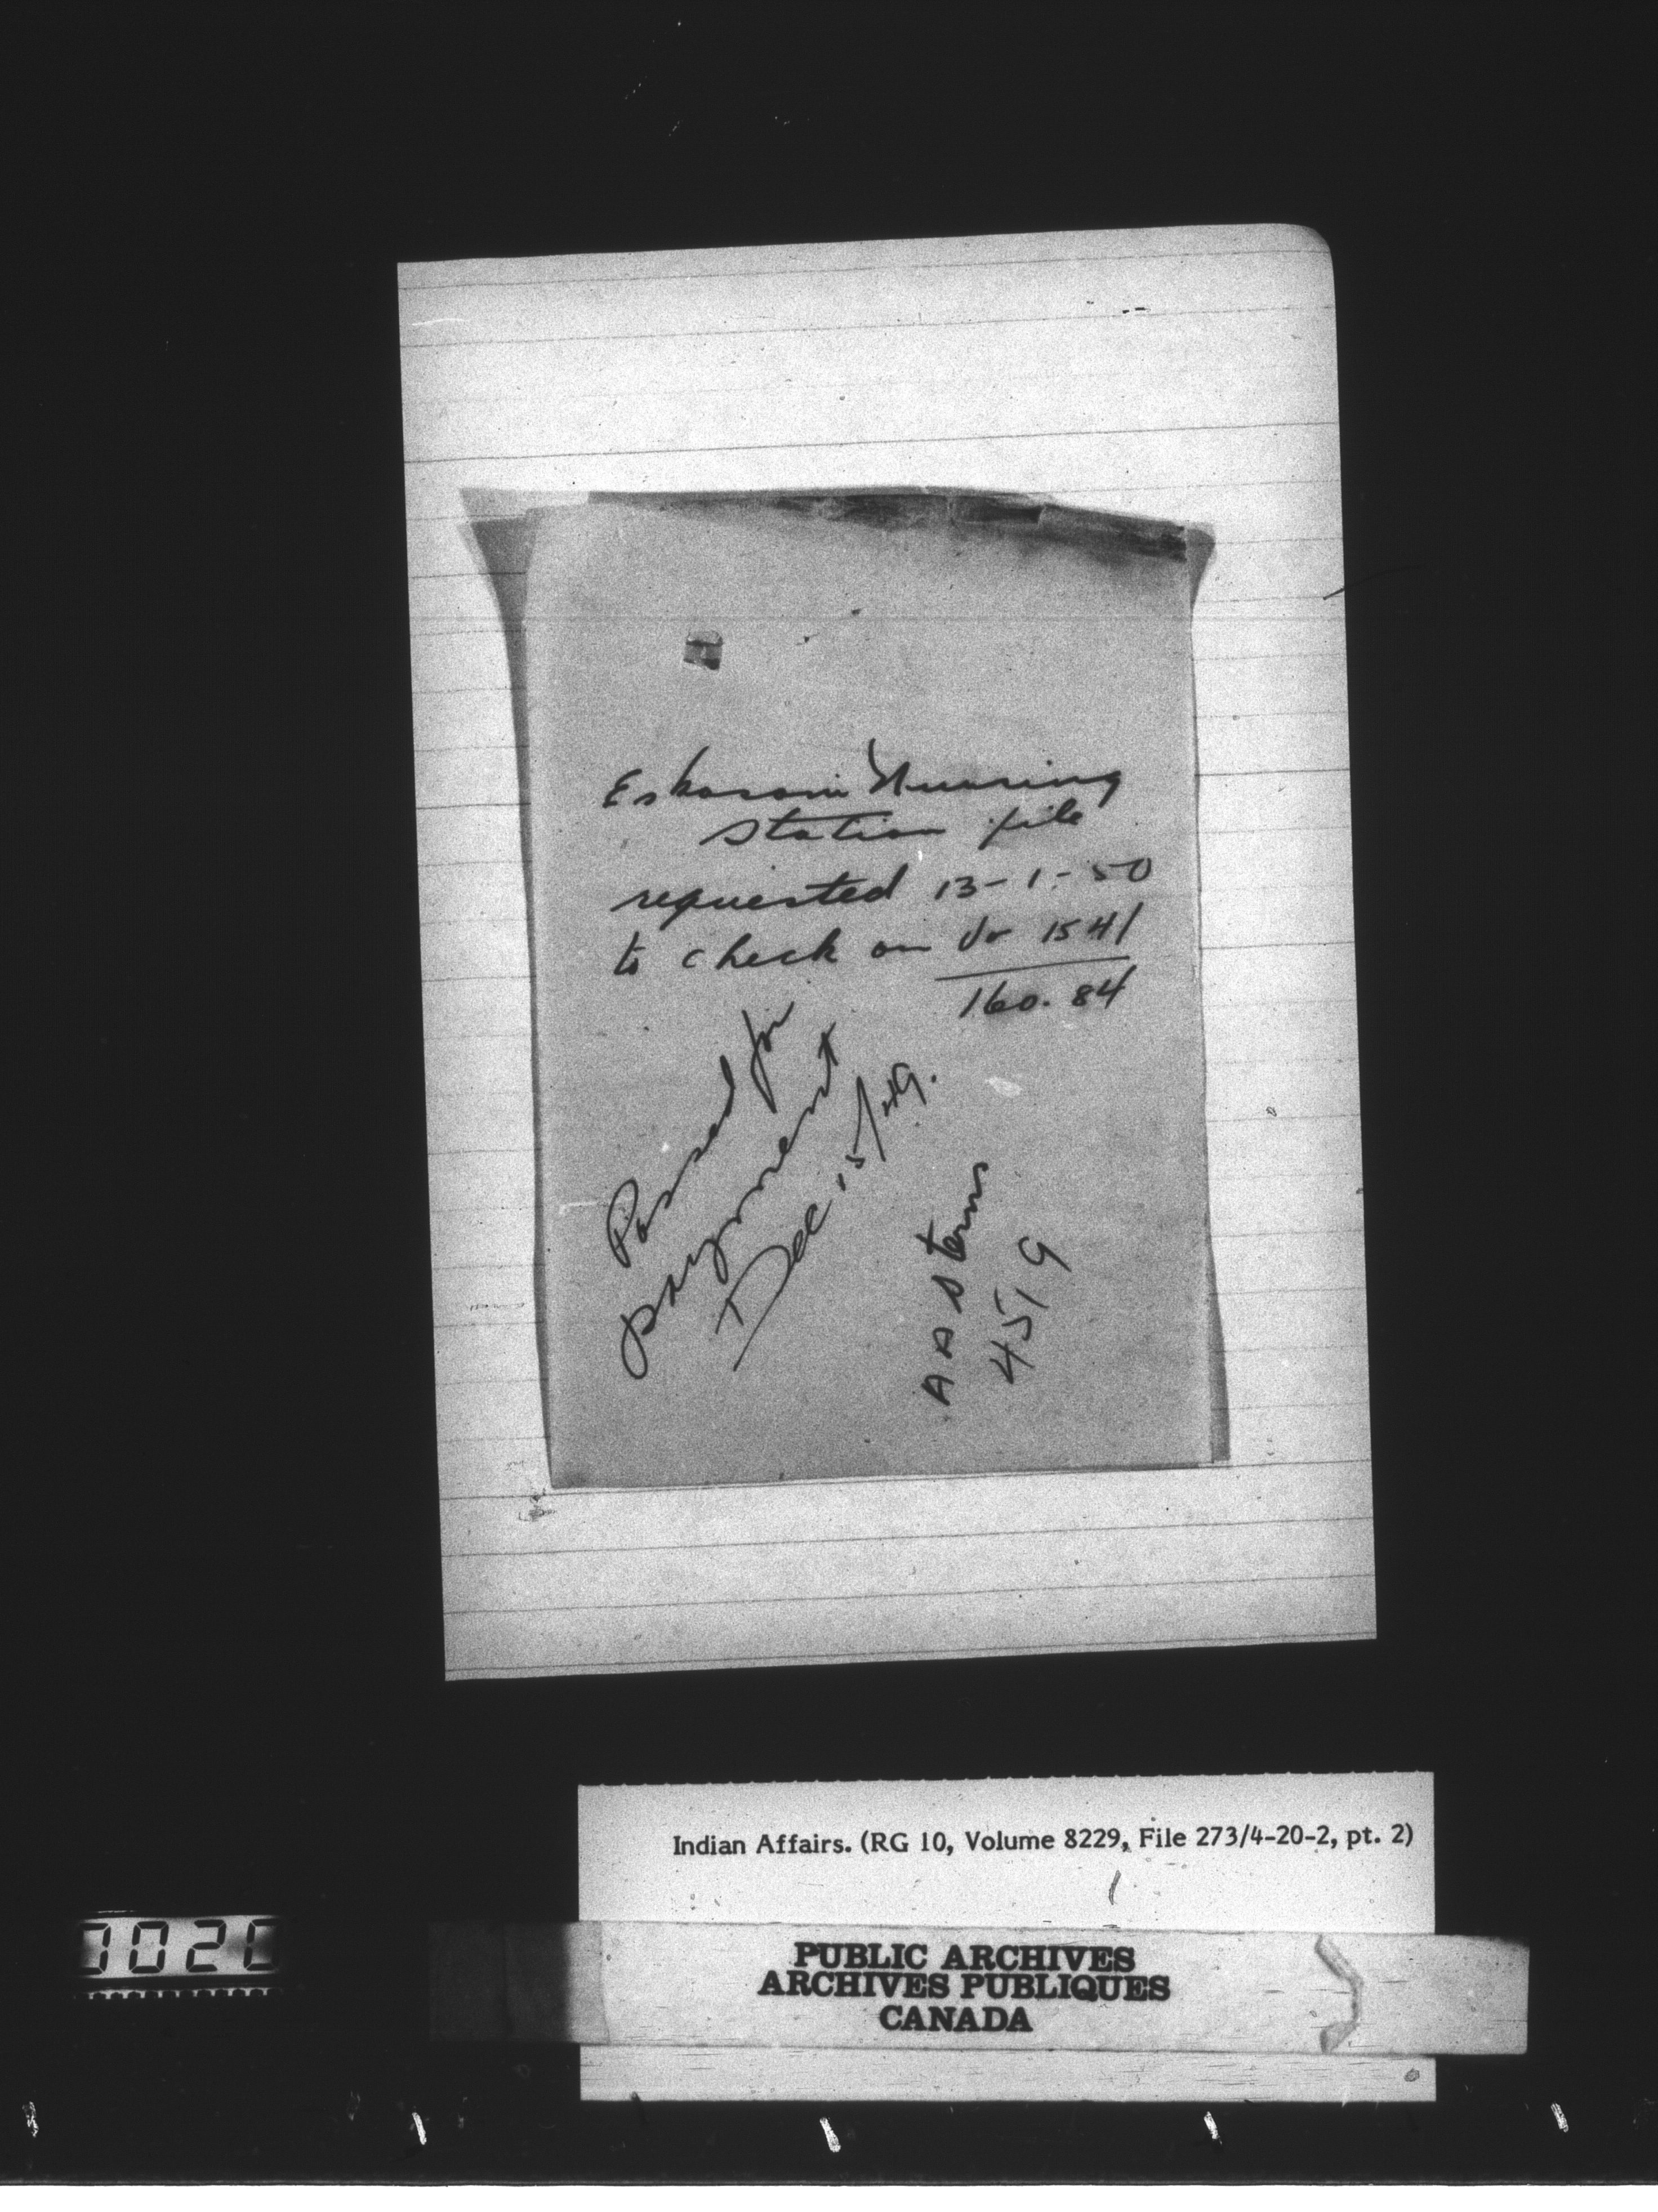 Eskasoni Nursing
Station file
requested 13-1-50
to check on Vo 1541
160.84
Passed for
payment
Dec 15/49.
A A Sterns
4519
Indian Affairs. (RG 10, Volume 8229, File 273/4-20-2, pt. 2)
PUBLIC ARCHIVES
ARCHIVES PUBLIQUES
CANADA